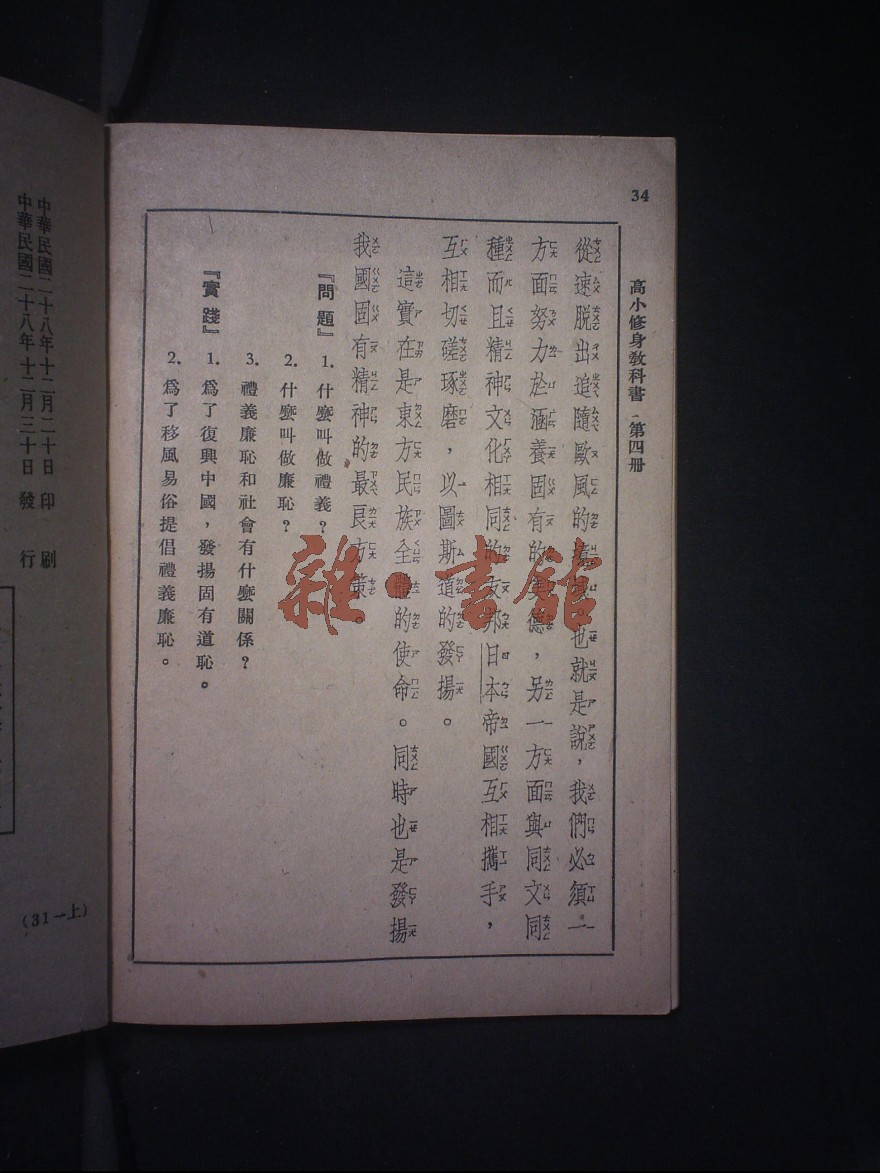 34
高小修身教科書 - 第四冊
從速脫出追隨歐風的也就是說,我們必須一
方面努力於涵養固有的美德,另一方面與同文同
種而且精神文化相同的友邦日本帝國互相攜手,
互相切磋琢磨,以圖斯道的發揚。
這實在是東方民族全體的使命。同時也是發揚
我國固有精神的最良方策。
『問題』1. 什麼叫做禮義?
2. 什麼叫做廉恥?
3. 禮義廉恥和社會有什麼關係?
『實踐』1. 爲了復興中國,發揚固有道恥。
2. 爲了移風易俗提倡禮義廉恥。
中華民國二十八年十二月二十日 印 刷
中華民國二十八年十二月三十日 發 行
(31—上)
雜·書館